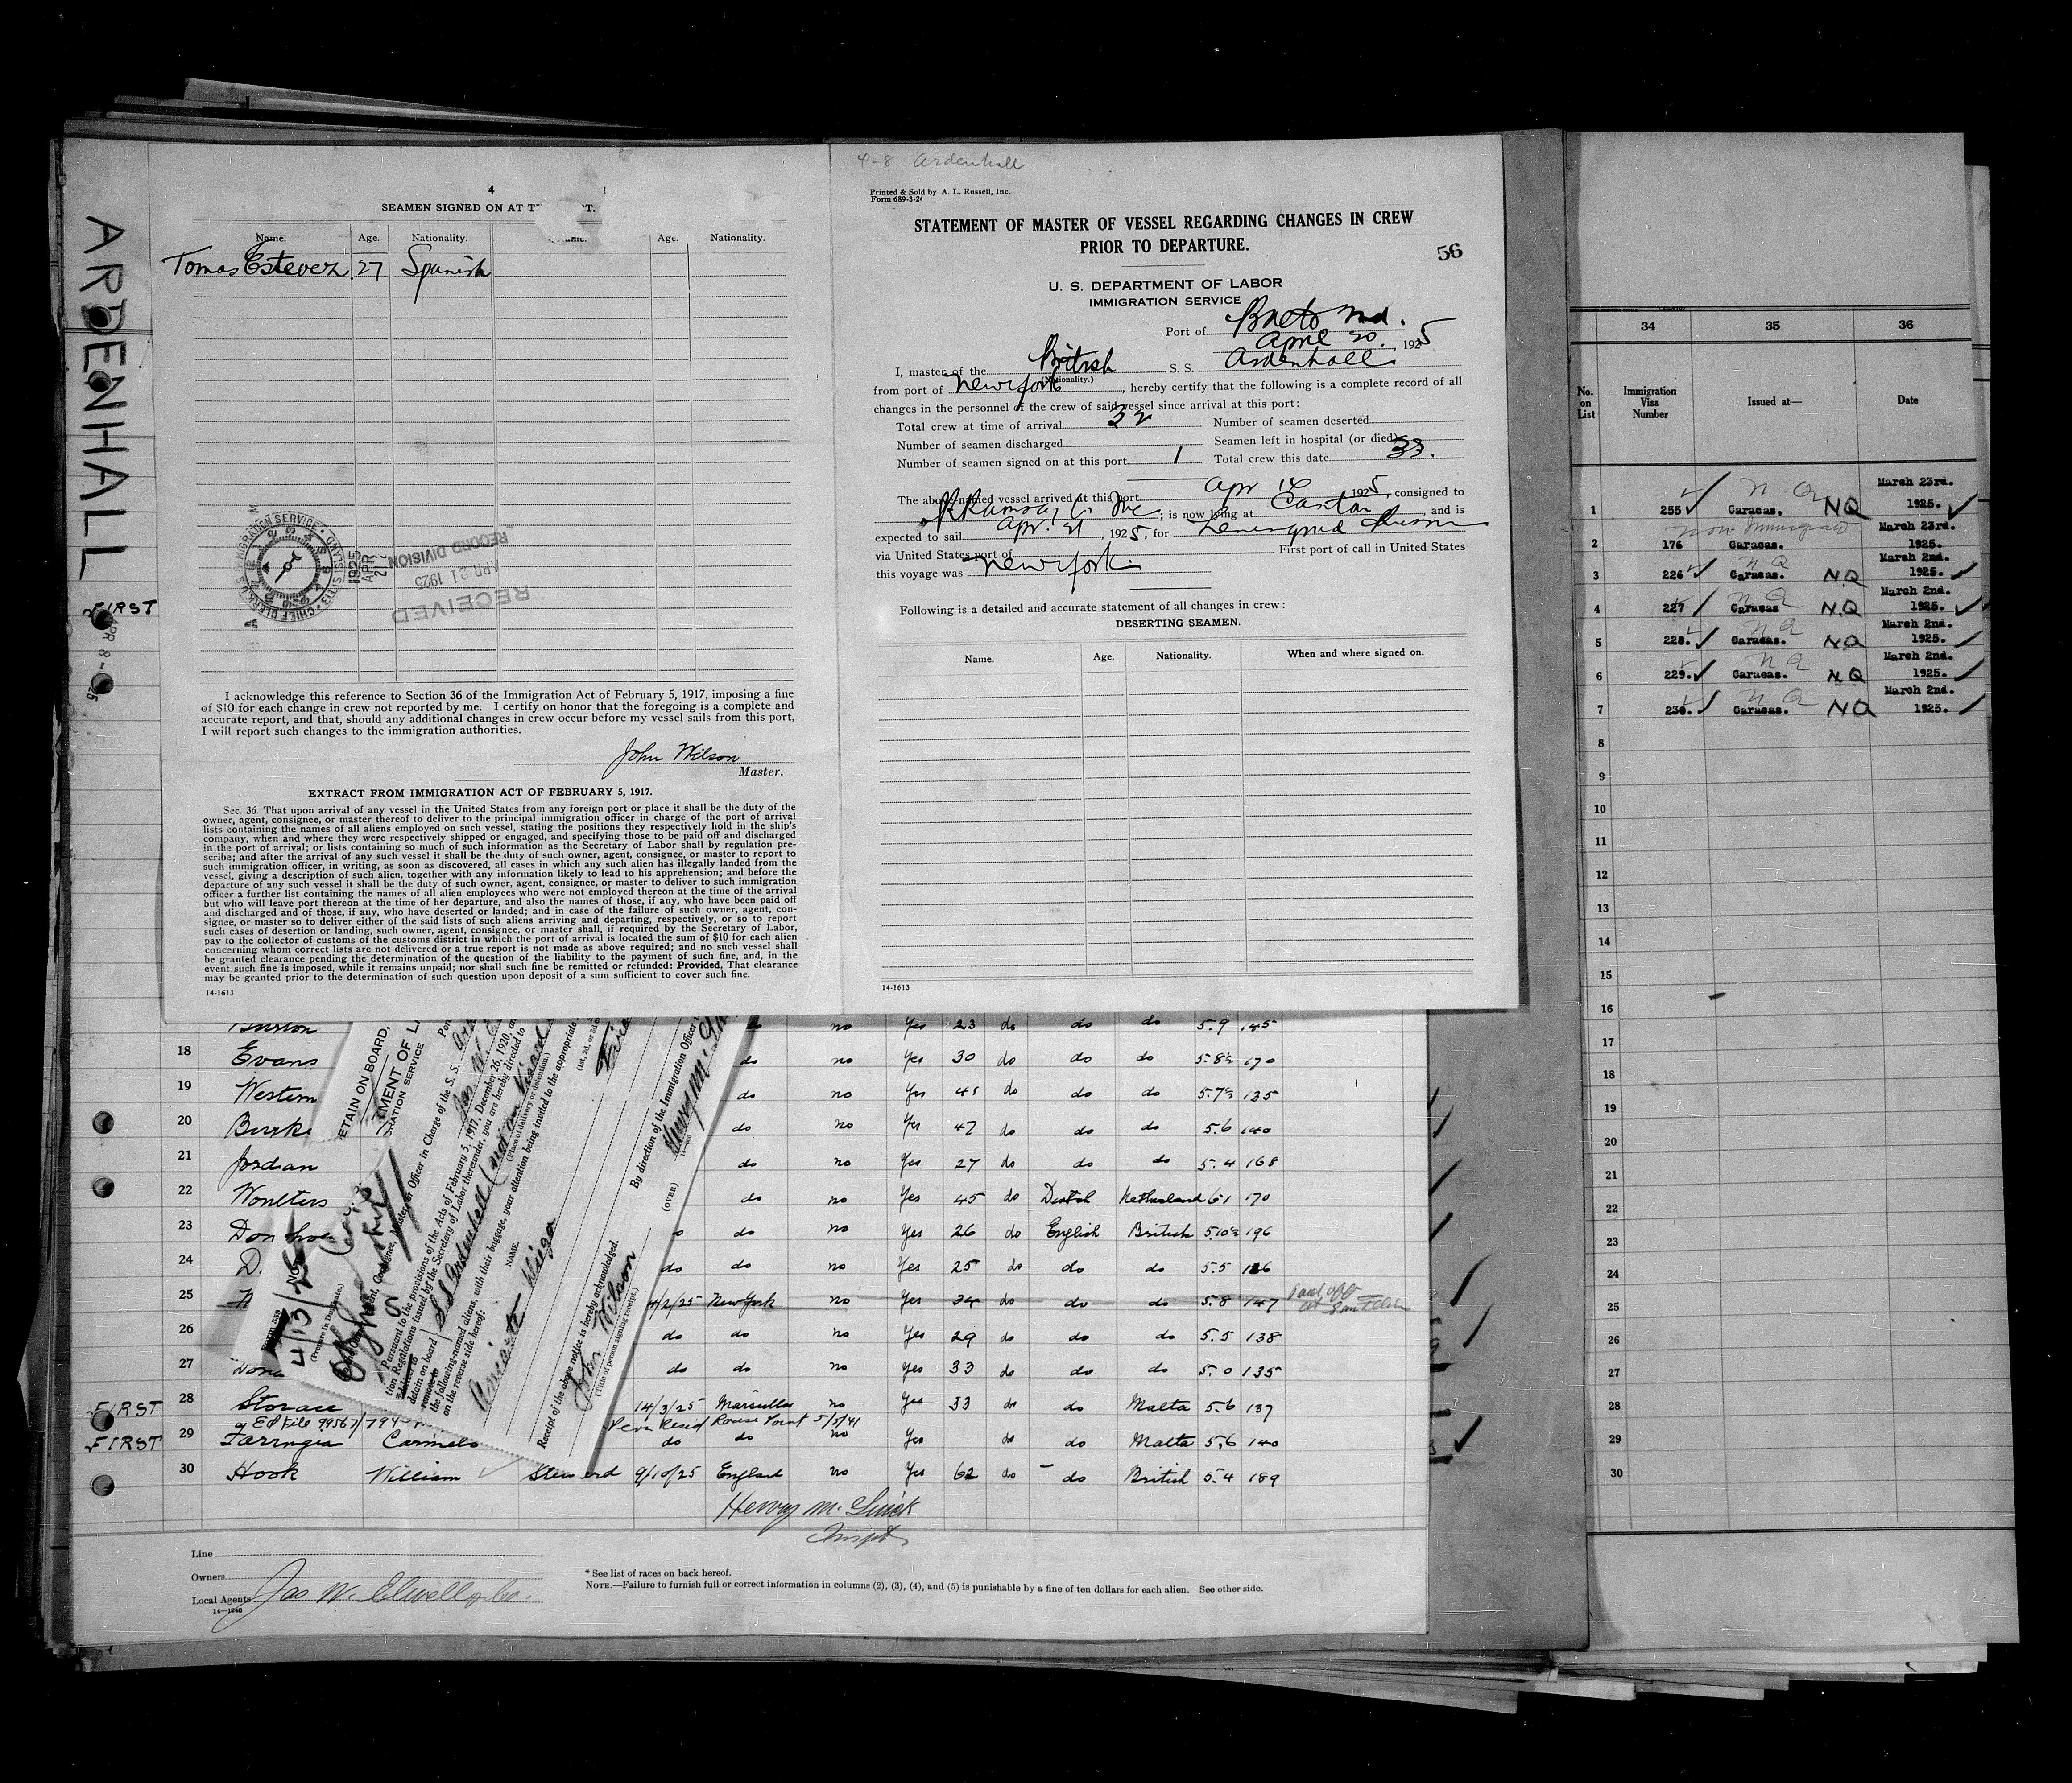 ARDENHALL
FIRST
APR 8 - 25
4
SEAMEN SIGNED ON AT
Name. Age. Nationality. Age. Nationality.
Tomas Estevez 27 Spanish
RECEIVED
APR 21 1925
RECORD DIVISION
IMMIGRATION SERVICE
CHIEF CLERK
1925 APR 21
I acknowledge this reference to Section 36 of the Immigration Act of February 5, 1917, imposing a fine
of $10 for each change in crew not reported by me. I certify on honor that the foregoing is a complete and
accurate report, and that, should any additional changes in crew occur before my vessel sails from this port,
I will report such changes to the immigration authorities.
John Wilson
Master.
EXTRACT FROM IMMIGRATION ACT OF FEBRUARY 5, 1917.
Sec. 36. That upon arrival of any vessel in the United States from any foreign port or place it shall be the duty of the
owner, agent, consignee, or master thereof to deliver to the principal immigration officer in charge of the port of arrival
lists containing the names of all aliens employed on such vessel, stating the positions they respectively hold in the ship's
company, when and where they were respectively shipped or engaged, and specifying those to be paid off and discharged
in the port of arrival; or lists containing so much of such information as the Secretary of Labor shall by regulation pre-
scribe; and after the arrival of any such vessel it shall be the duty of such owner, agent, consignee, or master to report to
such immigration officer, in writing, as soon as discovered, all cases in which any such alien has illegally landed from the
vessel, giving a description of such alien, together with any information likely to lead to his apprehension; and before the
departure of any such vessel it shall be the duty of such owner, agent, consignee, or master to deliver to such immigration
officer a further list containing the names of all alien employees who were not employed thereon at the time of the arrival
but who will leave port thereon at the time of her departure, and also the names of those, if any, who have been paid off
and discharged and of those, if any, who have deserted or landed; and in case of the failure of such owner, agent, con-
signee, or master so to deliver either of the said lists of such aliens arriving and departing, respectively, or so to report
such cases of desertion or landing, such owner, agent, consignee, or master shall, if required by the Secretary of Labor,
pay to the collector of customs of the customs district in which the port of arrival is located the sum of $10 for each alien
concerning whom correct lists are not delivered or a true report is not made as above required; and no such vessel shall
be granted clearance pending the determination of the question of the liability to the payment of such fine, and, in the
event such fine is imposed, while it remains unpaid; nor shall such fine be remitted or refunded: Provided, That clearance
may be granted prior to the determination of such question upon deposit of a sum sufficient to cover such fine.
14-1613
4-8 Ardenhall
Printed & Sold by A. L. Russell, Inc.
Form 689-3-24
STATEMENT OF MASTER OF VESSEL REGARDING CHANGES IN CREW
PRIOR TO DEPARTURE.
56
U. S. DEPARTMENT OF LABOR
IMMIGRATION SERVICE
Port of Balto Md.
April 20, 1925
I, master of the British S. S. Ardenhall
(Nationality.)
from port of New York, hereby certify that the following is a complete record of all
changes in the personnel of the crew of said vessel since arrival at this port:
Total crew at time of arrival 32 Number of seamen deserted
Number of seamen discharged Seamen left in hospital (or died)
Number of seamen signed on at this port 1 Total crew this date 33.
The above-named vessel arrived at this port Apr 16 1925, consigned to
Ramsay Co Inc; is now lying at Canton, and is
expected to sail Apr. 21, 1925, for Leningrad Russia
via United States port of First port of call in United States
this voyage was New York
Following is a detailed and accurate statement of all changes in crew:
DESERTING SEAMEN.
Name. Age. Nationality. When and where signed on.
14-1613
34 35 36
No. on List Immigration Visa Number Issued at— Date
1 255 Caracas. NQ March 23rd. 1925.
2 176 Non Immigrant Caracas. March 23rd. 1925.
3 226 Caracas. NQ March 2nd. 1925.
4 227 Caracas NQ March 2nd. 1925.
5 228. Caracas. NQ March 2nd. 1925.
6 229. Caracas. NQ March 2nd. 1925.
7 230. Caracas. NQ March 2nd. 1925.
8
9
10
11
12
13
14
15
16
17
18
19
20
21
22
23
24
25
26
27
28
29
30
Burton do no Yes 23 do do do 5.9 145
18 Evans do no Yes 30 do do do 5.8½ 170
19 Western do no Yes 41 do do do 5.7½ 135
20 Burke do no Yes 47 do do do 5.6 140
21 Jordan do no Yes 27 do do do 5.4 168
22 Woulters do no Yes 45 do Dutch Netherland 6.1 170
23 Don do no Yes 26 do English British 5.10½ 196
24 D. do do no Yes 25 do do do 5.5 126
25 4/2/25 New York no Yes 34 do do do 5.8 147 Paid off at
26 do do no Yes 29 do do do 5.5 138
27 Dona do do no Yes 33 do do do 5.0 135
FIRST 28 Storace 14/3/25 Marseilles no Yes 33 do do Malta 5.6 137
Ed File 99567/794 Perm Resid Rouses Point 5/5/41
FIRST 29 Farrugia Carmelo do do no Yes do do Malta 5.6 140
30 Hook William Steward 9/10/25 England no Yes 62 do do British 5.4 189
Henry M. Quick
Inspt
Line
Owners
Local Agents Jas W. Elwell & Co.
14-1240
* See list of races on back hereof.
NOTE.—Failure to furnish full or correct information in columns (2), (3), (4), and (5) is punishable by a fine of ten dollars for each alien. See other side.
DETAIN ON BOARD,
4/13/25
Officer in Charge of the S. S.
Pursuant to the provisions of the Acts of February 5, 1917, December 26, 1920, and
tion Regulations issued by the Secretary of Labor thereunder, you are hereby directed to
detain on board S.S. Ardenhall
(Place of delivery or detention.)
the following-named aliens, with their baggage, your attention being invited to the appropriate
on the reverse side hereof:
NAME.
By direction of the Immigration Officer
Henry M.
(OVER)
Receipt of the above notice is hereby acknowledged.
John Wilson
(Title of person signing receipt.)